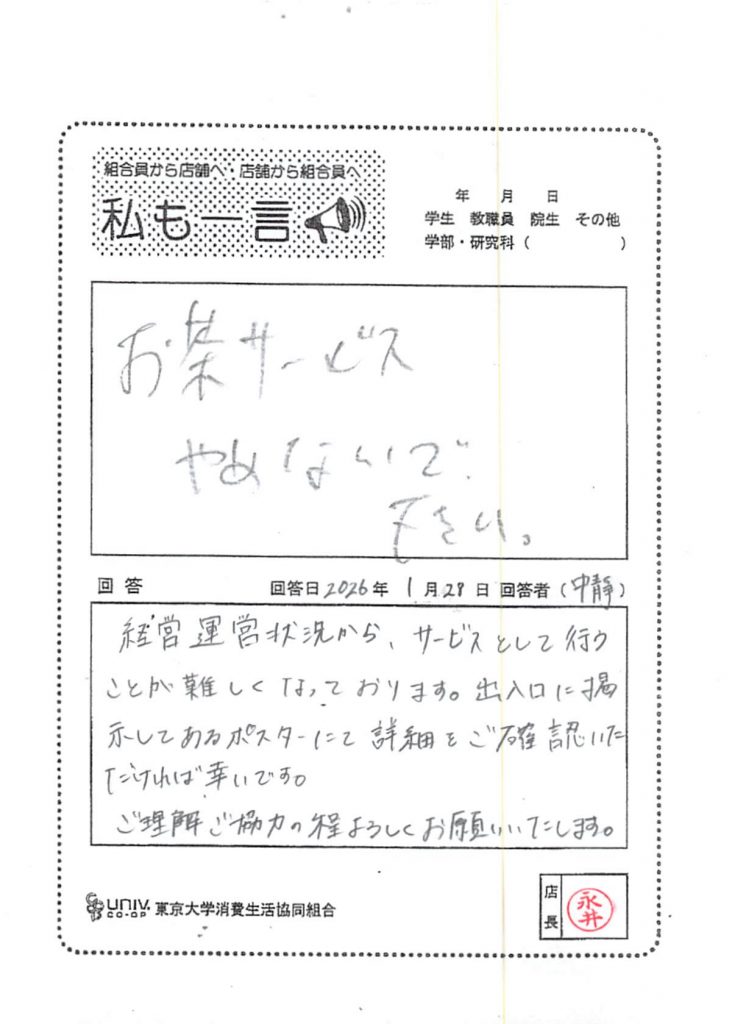 組合員から店舗へ・店舗から組合員へ
私も一言
年 月 日
学生 教職員 院生 その他
学部・研究科( )
お茶サービス
やめないで
下さい。
回答 回答日2026年 1月29日 回答者(中静)
経営運営状況から、サービスとして行う
ことが難しくなっております。出入口に掲
示してあるポスターにて詳細をご確認いた
だければ幸いです。
ご理解ご協力の程よろしくお願いいたします。
UNIV. CO-OP 東京大学消費生活協同組合
店長
永井